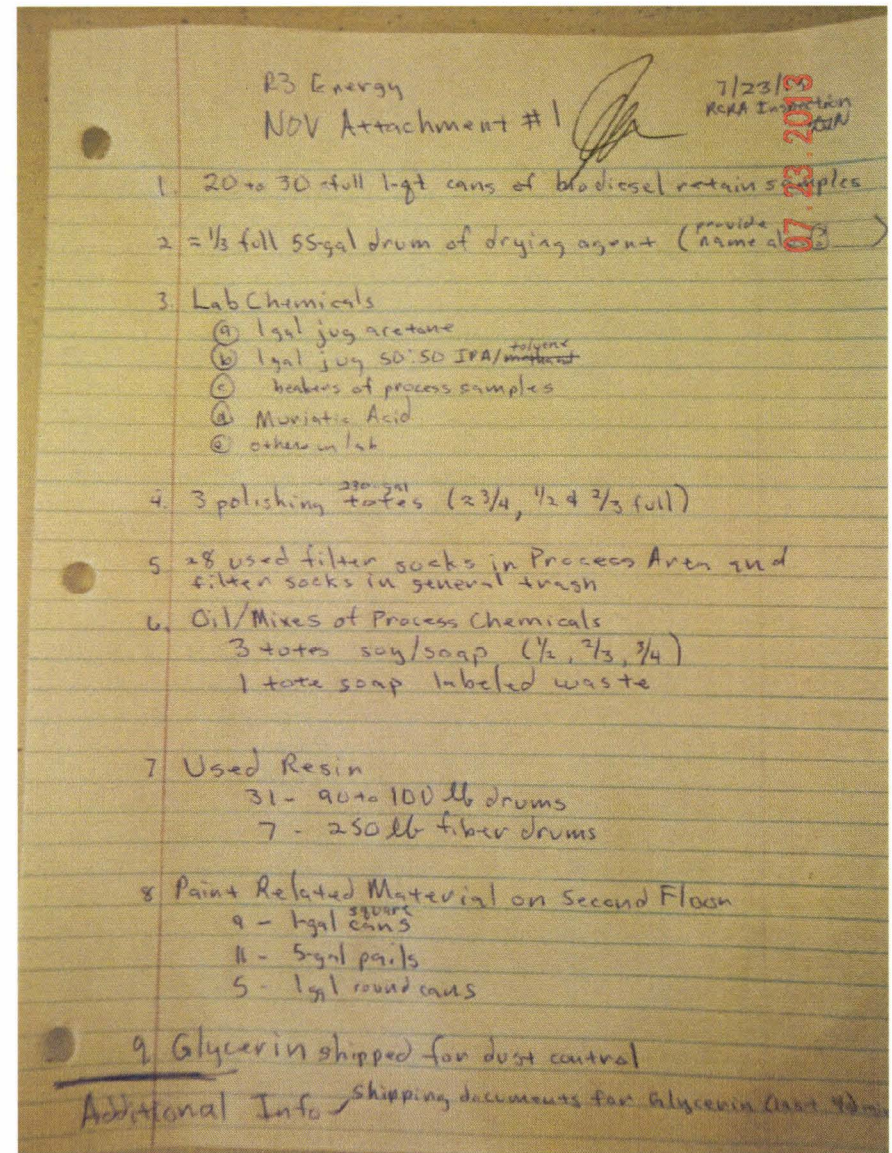 R3 Energy
NOV Attachment #1
7/23/13
RCRA Inspection
07.23.2013
1. 20 to 30 full 1-qt cans of biodiesel retain samples
2 ≈ 1/3 full 55-gal drum of drying agent (provide name
3. Lab Chemicals
(a) 1gal jug acetone
(b) 1gal jug 50:50 IPA/toluene
(c) beakers of process samples
(d) Muriatic Acid
(e) others in lab
4. 3 polishing 230-gal totes (≈ 3/4, 1/2 & 2/3 full)
5 ≈8 used filter socks in Process Area and
filter socks in general trash
6. Oil/Mixes of Process Chemicals
3 totes soy/soap (1/2, 2/3, 3/4)
1 tote soap labeled waste
7 Used Resin
31- 90 to 100 lb drums
7 - 250 lb fiber drums
8 Paint Related Material on Second Floor
9 - 1-gal square cans
11 - 5-gal pails
5 - 1gal round cans
9 Glycerin shipped for dust control
Additional Info shipping documents for Glycerin (last